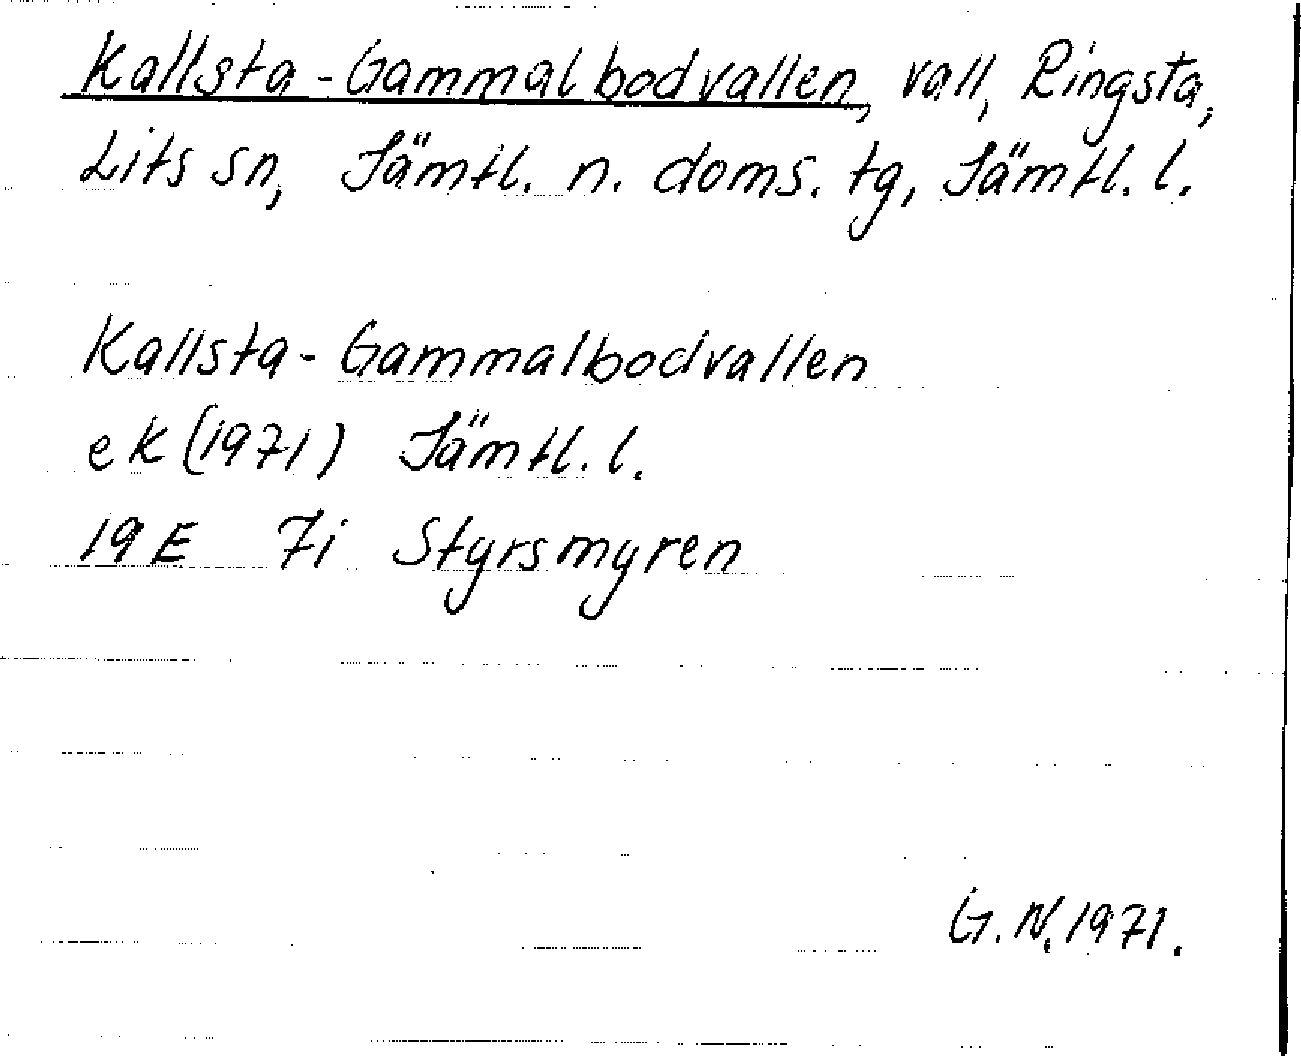 Kallsta-Gammalbodvallen, vall, Ringsta,
Lits sn, Jämtl. n. doms. tg, Jämtl. l.
Kallsta-Gammalbodvallen
ek (1971) Jämtl. l.
19E 7i Styrsmyren
G.N. 1971.